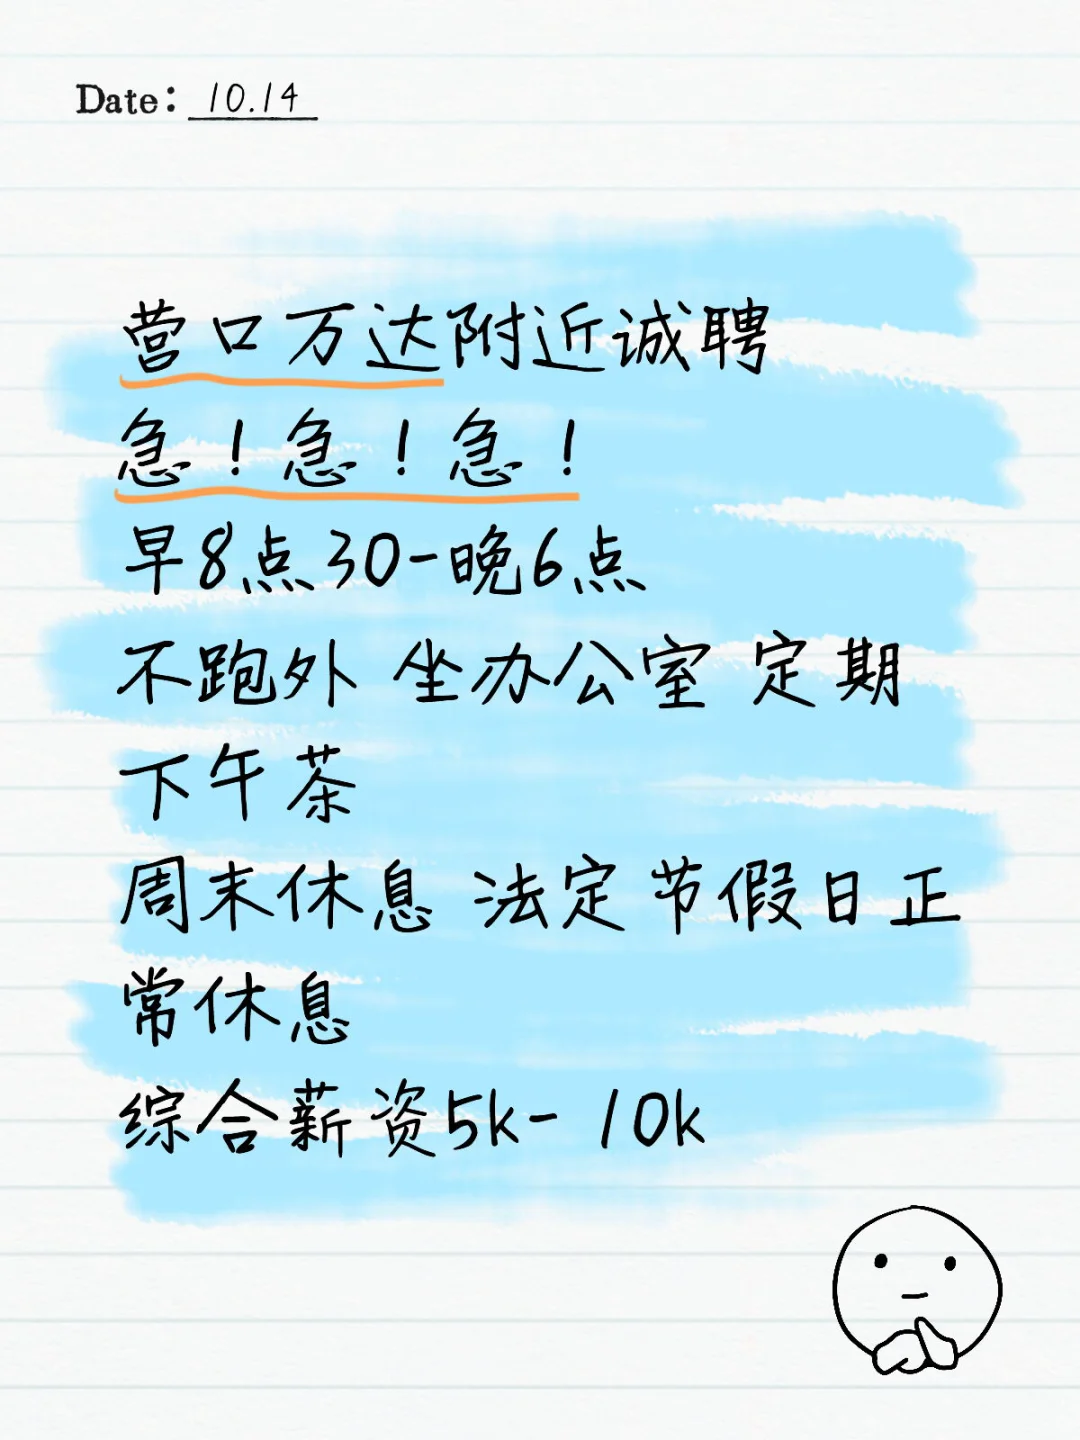 Date: 10.14
营口万达附近诚聘
急！急！急！
早8点30-晚6点
不跑外 坐办公室 定期
下午茶
周末休息 法定节假日正
常休息
综合薪资5k- 10k